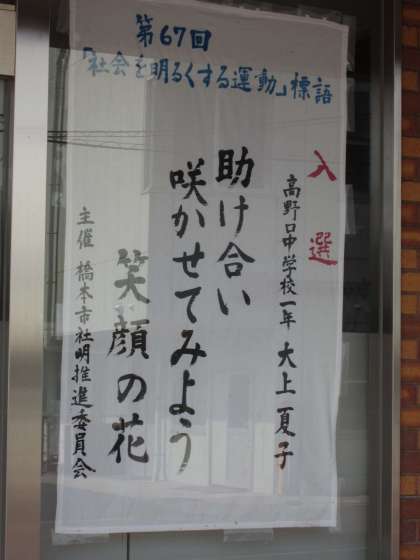 第67回
「社会を明るくする運動」標語
入選
高野口中学校一年 大上夏子
助け合い
咲かせてみよう
笑顔の花
主催 橋本市社明推進委員会